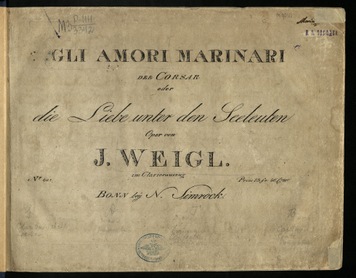 GLI AMORI MARINARI
DER CORSAR
oder
die Liebe unter den Seeleuten
Oper von
J. WEIGL.
im Clavierauszug
BONN bey N. Simrock.